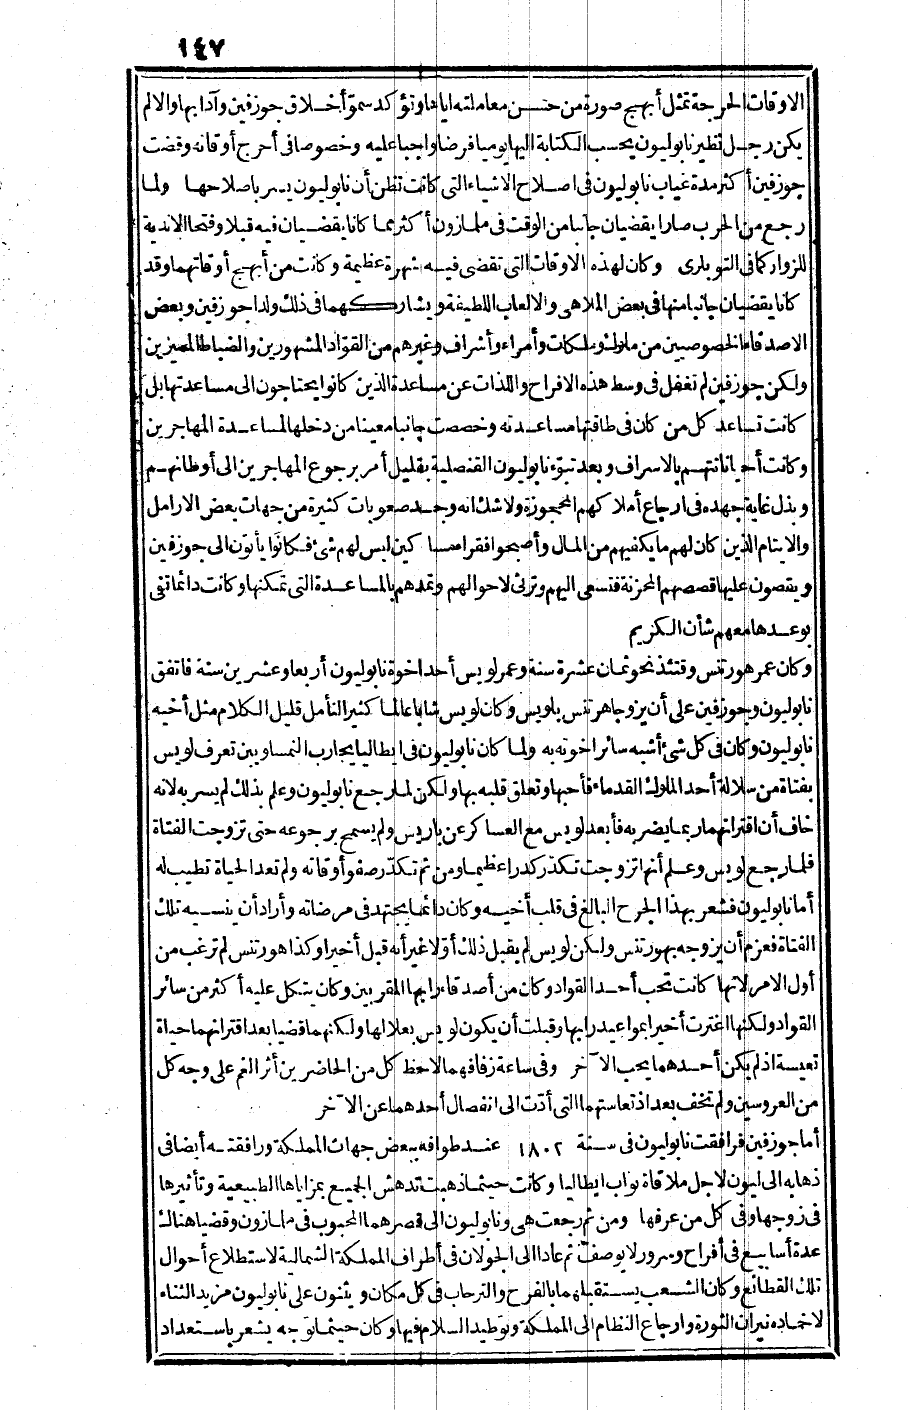 ١٤٧
الاوقات الحرجة تمثل أبهج صورة من حسن معاملته اياها وتؤكد سموّ أخلاق جوزفين وآدابها والا لم
يكن رجل نظير نابوليون يحسب الكتابة اليها يوميا فرضا واجبا عليه وخصوصا فى أحرج أوقاته وقضت
جوزفين أكثر مدة غياب نابوليون فى اصلاح الاشياء التى كانت تظن أن نابوليون يسر باصلاحها ولما
رجع من الحرب صارا يقضيان جانبا من الوقت فى ملمازون أكثر مما كانا يقضيان فيه قبلا وفتحا الاندية
للزوار كما فى التويلرى وكان لهذه الاوقات التى تقضى فيه شهرة عظيمة وكانت من أبهج أوقاتهما وقد
كانا يقضيان جانبا منها فى بعض الملاهى والالعاب اللطيفة ويشاركهما فى ذلك ولدا جوزفين وبعض
الاصدقاء الخصوصيين من ملوك وملكات وأمراء وأشراف وغيرهم من القواد المشهورين والضباط المميزين
ولكن جوزفين لم تغفل فى وسط هذه الافراح واللذات عن مساعدة الذين كانوا يحتاجون الى مساعدتها بل
كانت تساعد كل من كان فى طاقتها مساعدته وخصصت جانبا معينا من دخلها لمساعدة المهاجرين
وكانت أحيانا تتهم بالاسراف وبعد تبوّء نابوليون القنصلية بقليل أمر برجوع المهاجرين الى أوطانهم
وبذل غاية جهده فى ارجاع أملاكهم المحجوزة ولا شك انه وجد صعوبات كثيرة من جهات بعض الارامل
والايتام الذين كان لهم ما يكفيهم من المال وأصبحوا فقرا مساكين ليس لهم شئ فكانوا يأتون الى جوزفين
ويقصون عليها قصصهم المحزنة فتسعى اليهم وترثى لاحوالهم وتمدهم بالمساعدة التى تمكنها وكانت دائما تفى
بوعدها معهم شأن الكريم
وكان عمر هورتنس وقتئذ نحو ثمان عشرة سنة وعمر لويس أحد اخوة نابوليون أربعا وعشرين سنة فاتفق
نابوليون وجوزفين على أن يزوجا هرتنس بلويس وكان لويس شابا عالما كثير التأمل قليل الكلام مثل أخيه
نابوليون وكان فى كل شئ أشبه سائر اخوته به ولما كان نابوليون فى ايطاليا يحارب النمساويين تعرف لويس
بفتاة من سلالة أحد الملوك القدماء فأحبها وتعلق قلبه بها ولكن لما رجع نابوليون وعلم بذلك لم يسر به لانه
خاف أن اقترانهما ربما يضر به فأبعد لويس مع العساكر عن باريس ولم يسمح برجوعه حتى تزوجت الفتاة
فلما رجع لويس وعلم أنها تزوجت تكدر كدرا عظيما ومن ثم تكدّر صفو أوقاته ولم تعد الحياة تطيب له
أما نابوليون فشعر بهذا الجرح البالغ فى قلب أخيه وكان دائما يجتهد فى مرضاته وأراد أن ينسيه تلك
الفتاة فعزم أن يزوجه بهورتنس ولكن لويس لم يقبل ذلك أوّلا غير أنه قبل أخيرا وكذا هورتنس لم ترغب من
أول الامر لانها كانت تحب أحد القواد وكان من أصدقاء رابها المقربين وكان يتكل عليه أكثر من سائر
القواد ولكنها اغترت أخيرا بمواعيد رابها وقبلت أن يكون لويس بعلا لها ولكنهما قضيا بعد اقترانهما حياة
تعيسة اذ لم يكن أحدهما يحب الآخر وفى ساعة زفافهما لاحظ كل من الحاضرين أثر الغم على وجه كل
من العروسين ولم تخف بعد اذ تعاستهما التى أدّت الى انفصال أحدهما عن الآخر
أما جوزفين فرافقت نابوليون فى سنة ١٨٠٢ عند طوافه ببعض جهات المملكة ورافقته أيضا فى
ذهابه الى ليون لاجل ملاقاة نواب ايطاليا وكانت حيثما ذهبت تدهش الجميع بمزاياها الطبيعية وتأثيرها
فى زوجها وفى كل من عرفها ومن ثم رجعت هى ونابوليون الى قصرهما المحبوب فى ملمازون وقضيا هناك
عدة أسابيع فى أفراح وسرور لا يوصف ثم عادا الى الجولان فى أطراف المملكة الشمالية لاستطلاع أحوال
تلك القطائع وكان الشعب يستقبلهما بالفرح والترحاب فى كل مكان ويثنون على نابوليون مزيد الثناء
لاخماده نيران الثورة وارجاع النظام الى المملكة وتوطيد السلام فيها وكان حيثما توجه يشعر باستعداد